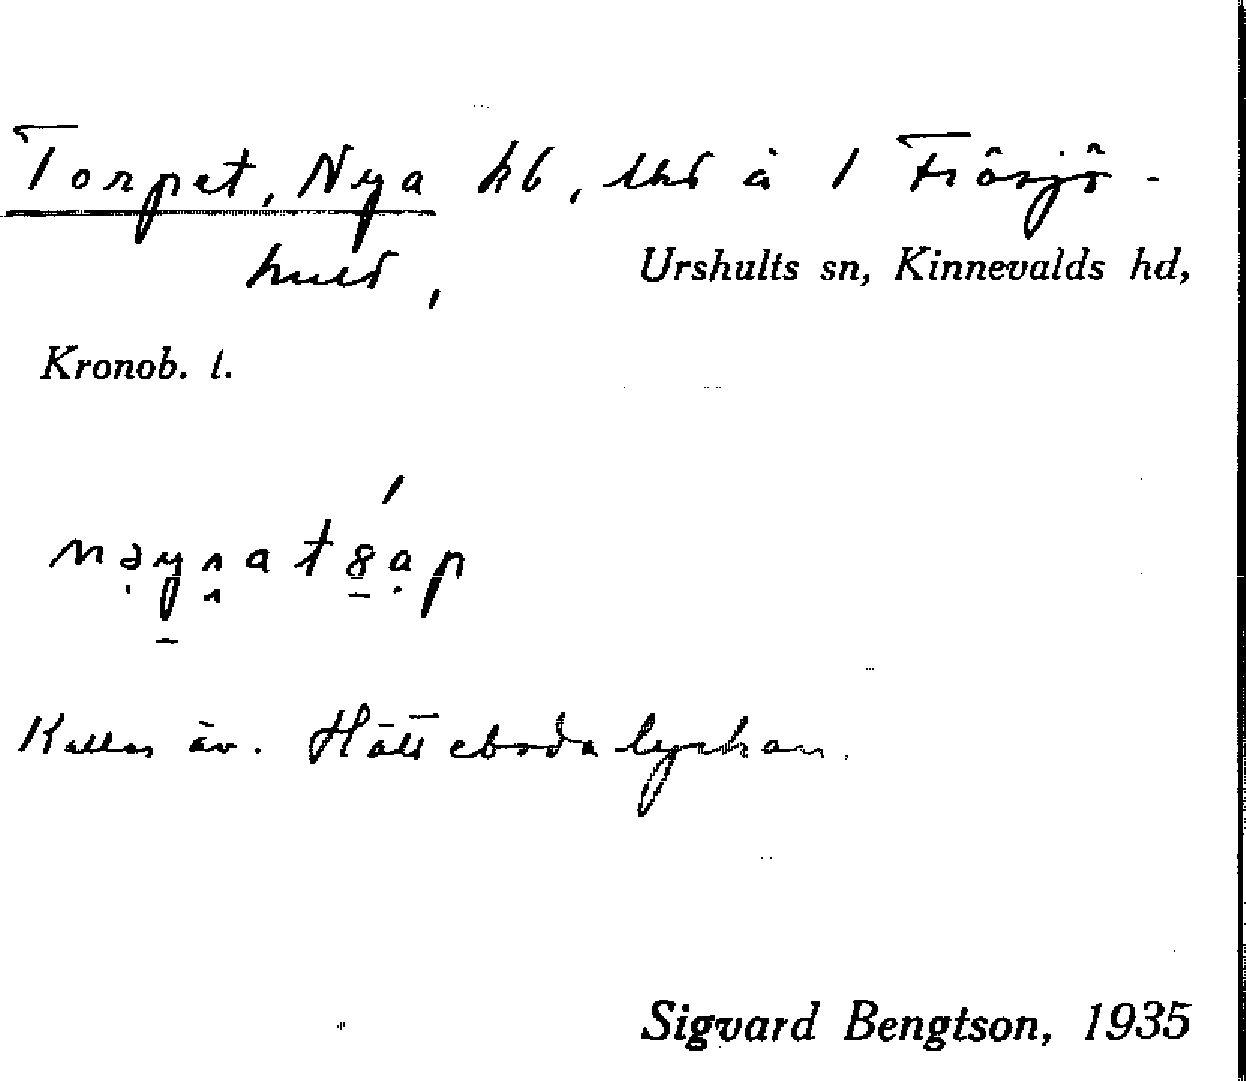 Torpet, Nya hb, lht å 1 Frösjö-
hult,
Urshults sn, Kinnevalds hd,
Kronob. l.
Kallas äv. Hättebodalyckan.
Sigvard Bengtson, 1935